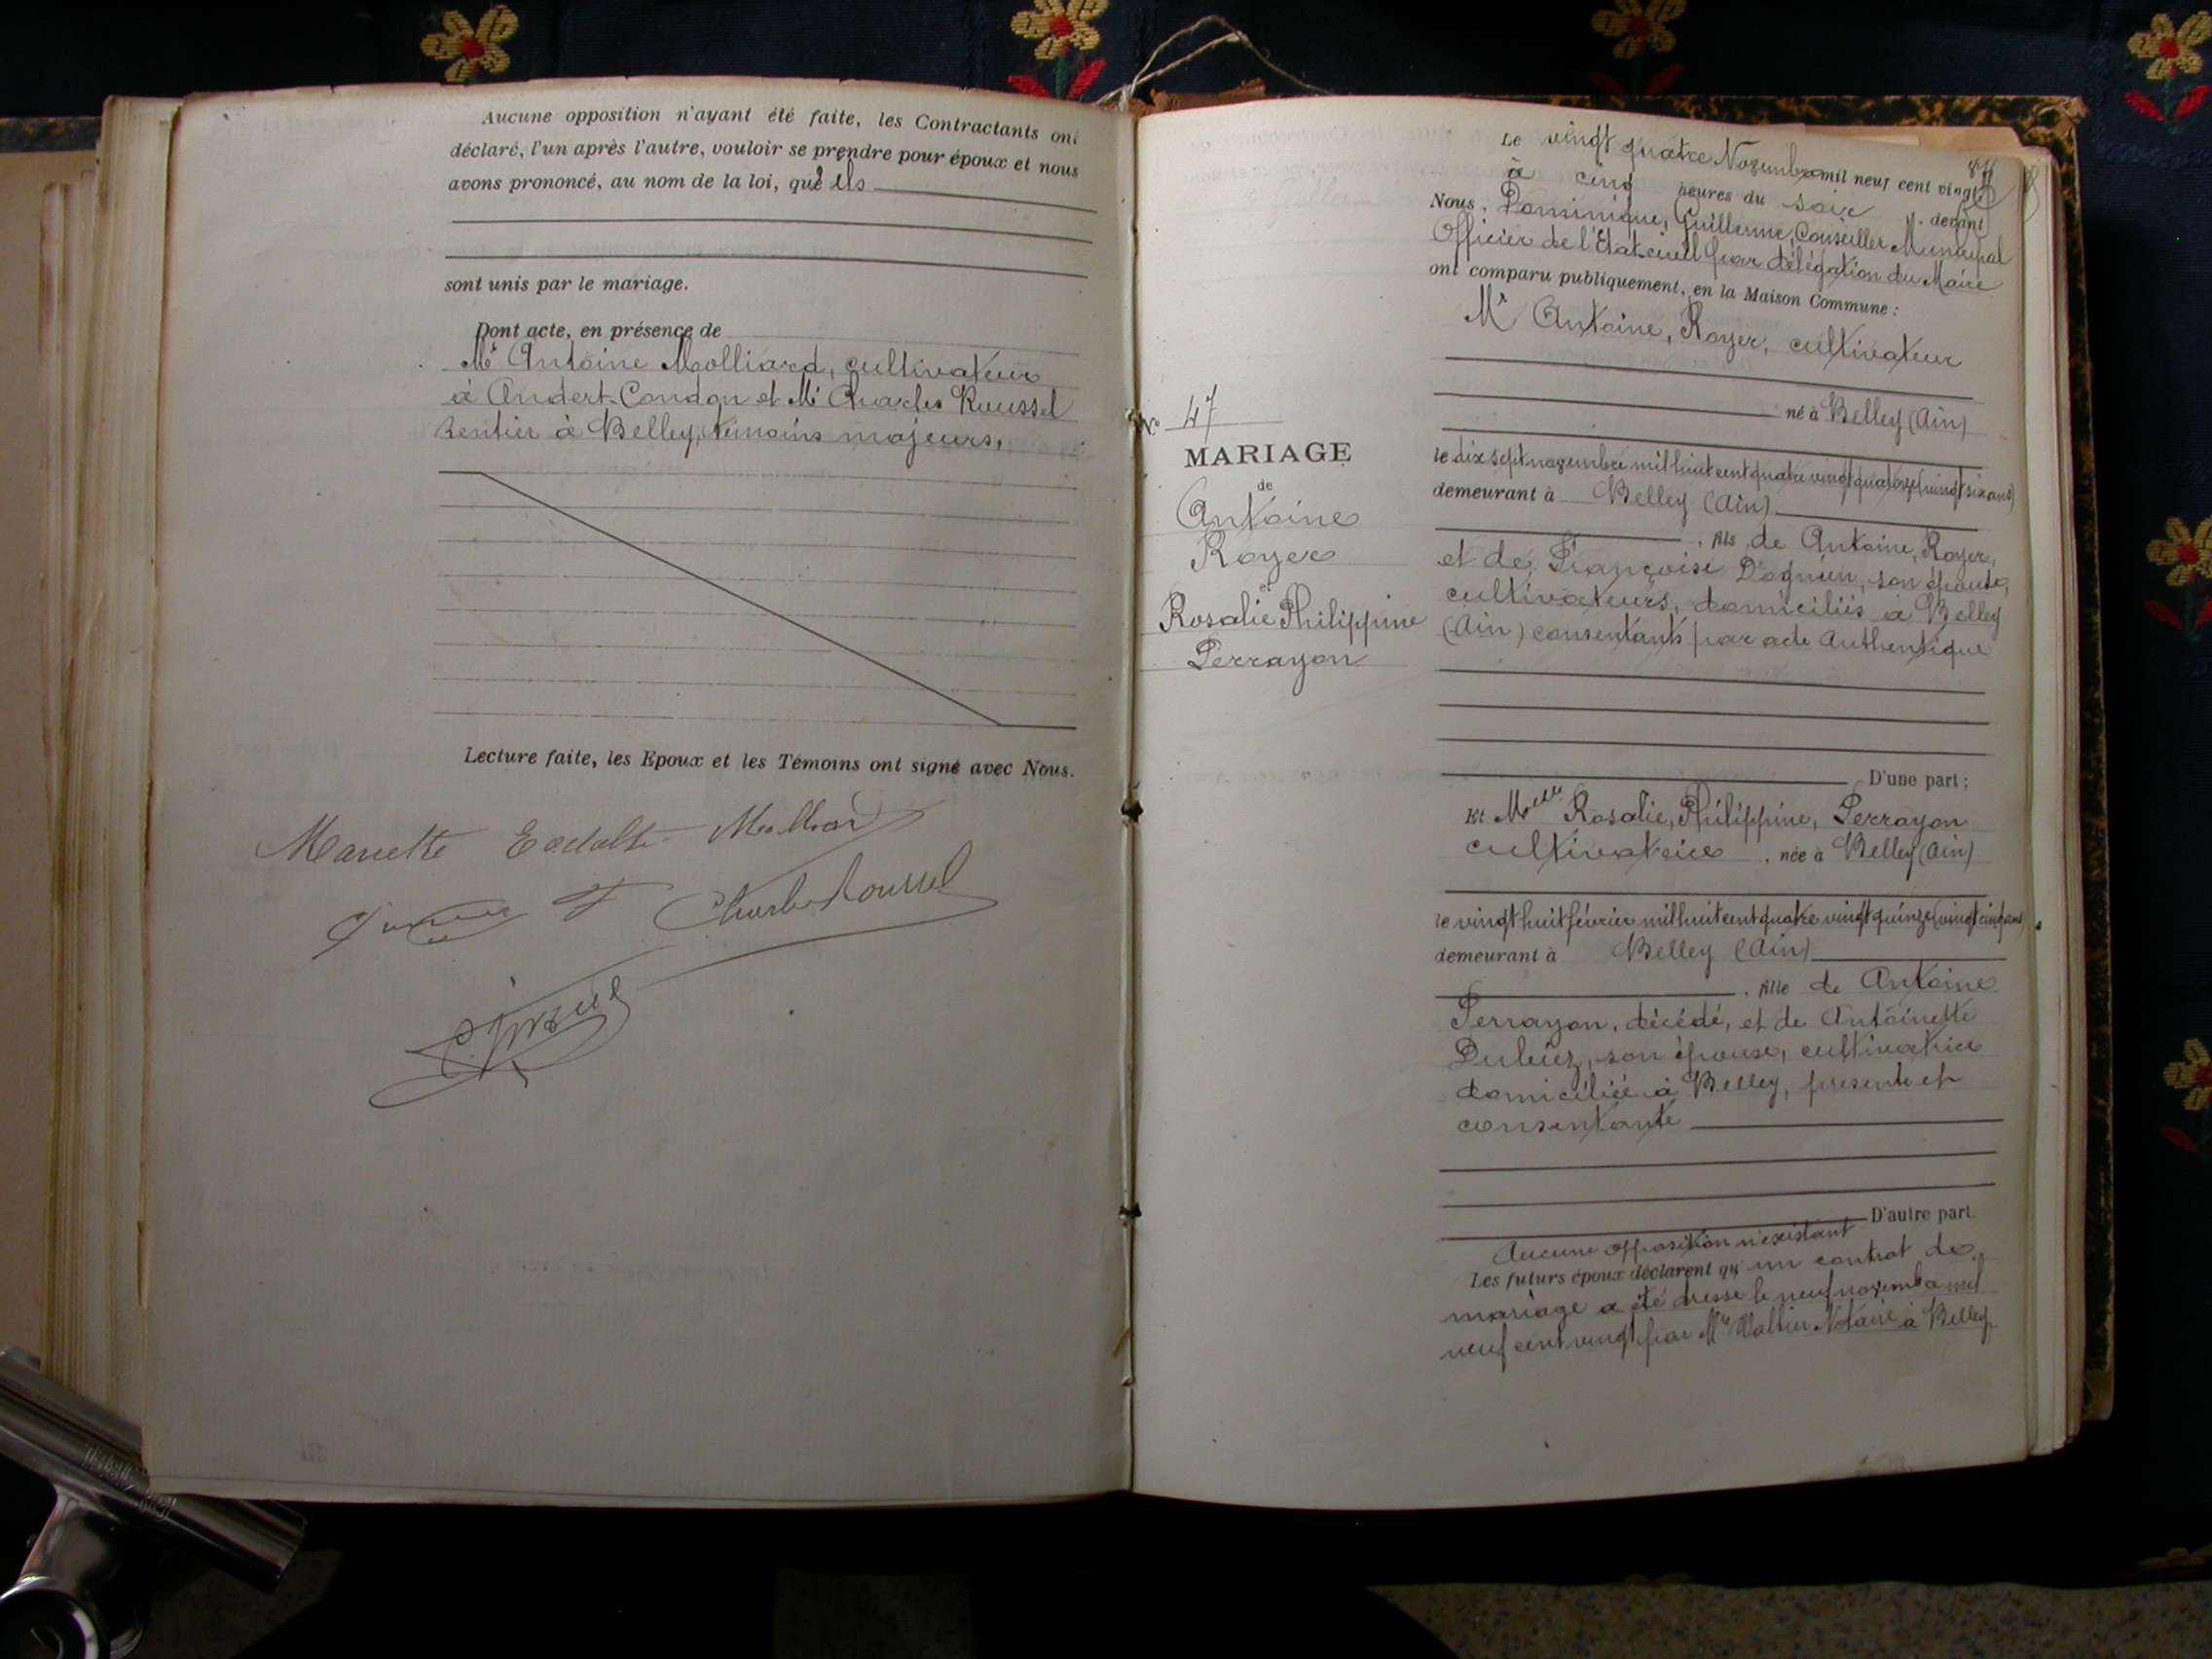 Aucune opposition n'ayant été faite, les Contractants ont
déclaré, l'un après l'autre, vouloir se prendre pour époux et nous
avons prononcé, au nom de la loi, qu'ils
sont unis par le mariage.
Dont acte, en présence de
Mr Antoine Molliard, cultivateur
à Andert-Condon et Mr Charles Roussel
rentier à Belley, témoins majeurs,
Lecture faite, les Epoux et les Témoins ont signé avec Nous.
Charles Roussel
No 47
MARIAGE
de
Antoine
Royer
et
Rosalie Philippine
Perrayon
Le vingt quatre Novembre mil neuf cent vingt
à cinq heures du soir devant
Nous, Dominique, Guillerme, Conseiller Municipal
Officier de l'Etat-civil par délégation du Maire
ont comparu publiquement, en la Maison Commune :
Mr Antoine, Royer, cultivateur
né à Belley (Ain)
le dix sept novembre mil huit cent quatre vingt quatorze (vingt six ans)
demeurant à Belley (Ain)
, fils de Antoine, Royer,
et de Françoise Dognin, son épouse,
cultivateurs, domiciliés à Belley
(Ain) consentants par acte authentique
D'une part ;
Et Melle Rosalie, Philippine, Perrayon
cultivatrice , née à Belley (Ain)
le vingt huit février mil huit cent quatre vingt quinze (vingt cinq ans)
demeurant à Belley (Ain)
, fille de Antoine
Perrayon, décédé, et de Antoinette
son épouse, cultivatrice
domiciliée à Belley, présente et
consentante
D'autre part.
Aucune opposition n'existant
Les futurs époux déclarent qu'un contrat de
mariage a été dressé le neuf novembre mil
neuf cent vingt par Me Vallin Notaire à Belley